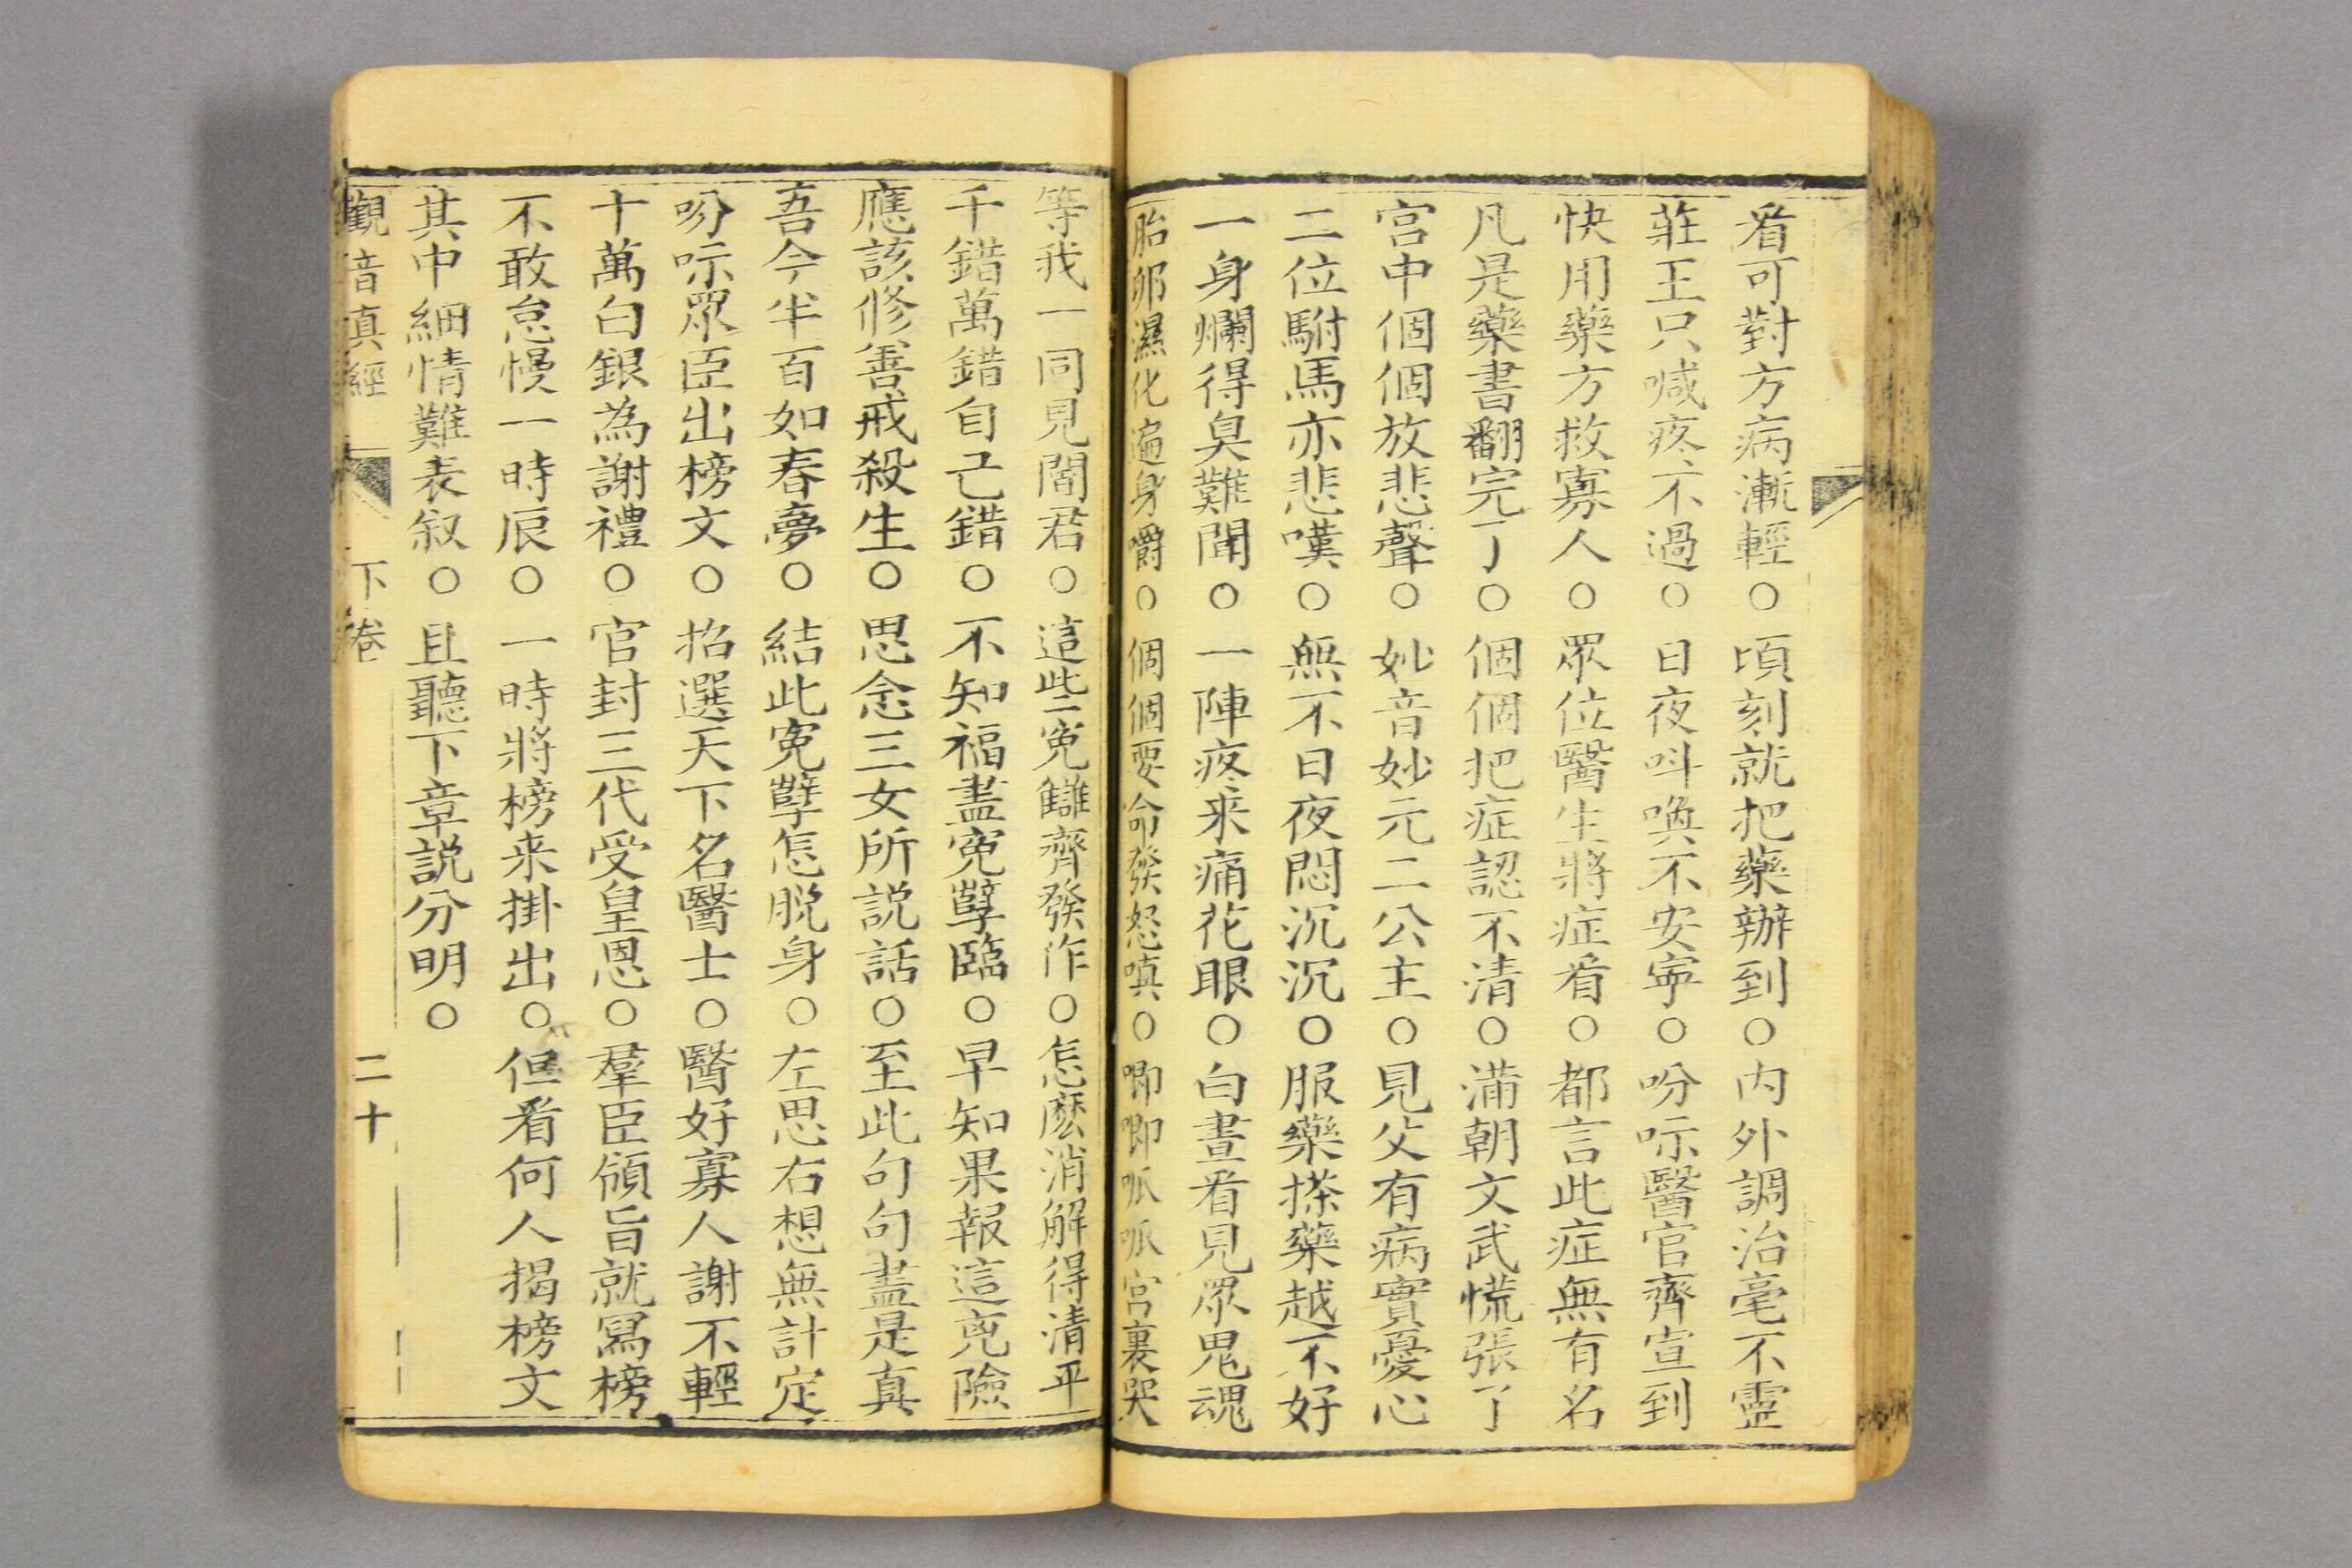 看可對方病漸輕○頃刻就把藥辦到○內外調治毫不靈
莊王只喊疼不過○日夜呌喚不安寧○吩咐醫官齊宣到
快用藥方救寡人○眾位醫生將症看○都言此症無有名
凡是藥書翻完了○個個把症認不清○滿朝文武慌張了
宮中個個放悲聲○妙音妙元二公主○見父有病實憂心
二位駙馬亦悲嘆○無不日夜悶沉沉○服藥搽藥越不好
一身爛得臭難聞○一陣疼来痛花眼○白晝看見眾鬼魂
胎卵濕化遍身嚼○個個要命發怒嗔○唧唧呱呱宮裏哭
等我一同見閻君○這些寃讎齊發作○怎麽消解得清平
千錯萬錯自己錯○不知福盡寃孽臨○早知果報這兇險
應該修善戒殺生○思念三女所説話○至此句句盡是真
吾今半百如春夢○結此寃孽怎脫身○左思右想無計定
吩咐眾臣出榜文○招選天下名醫士○醫好寡人謝不輕
十萬白銀為謝禮○官封三代受皇恩○羣臣領旨就寫榜
不敢怠慢一時辰○一時將榜来掛出○但看何人揭榜文
其中細情難表叙○且聽下章説分明○
觀音真經 下卷 二十